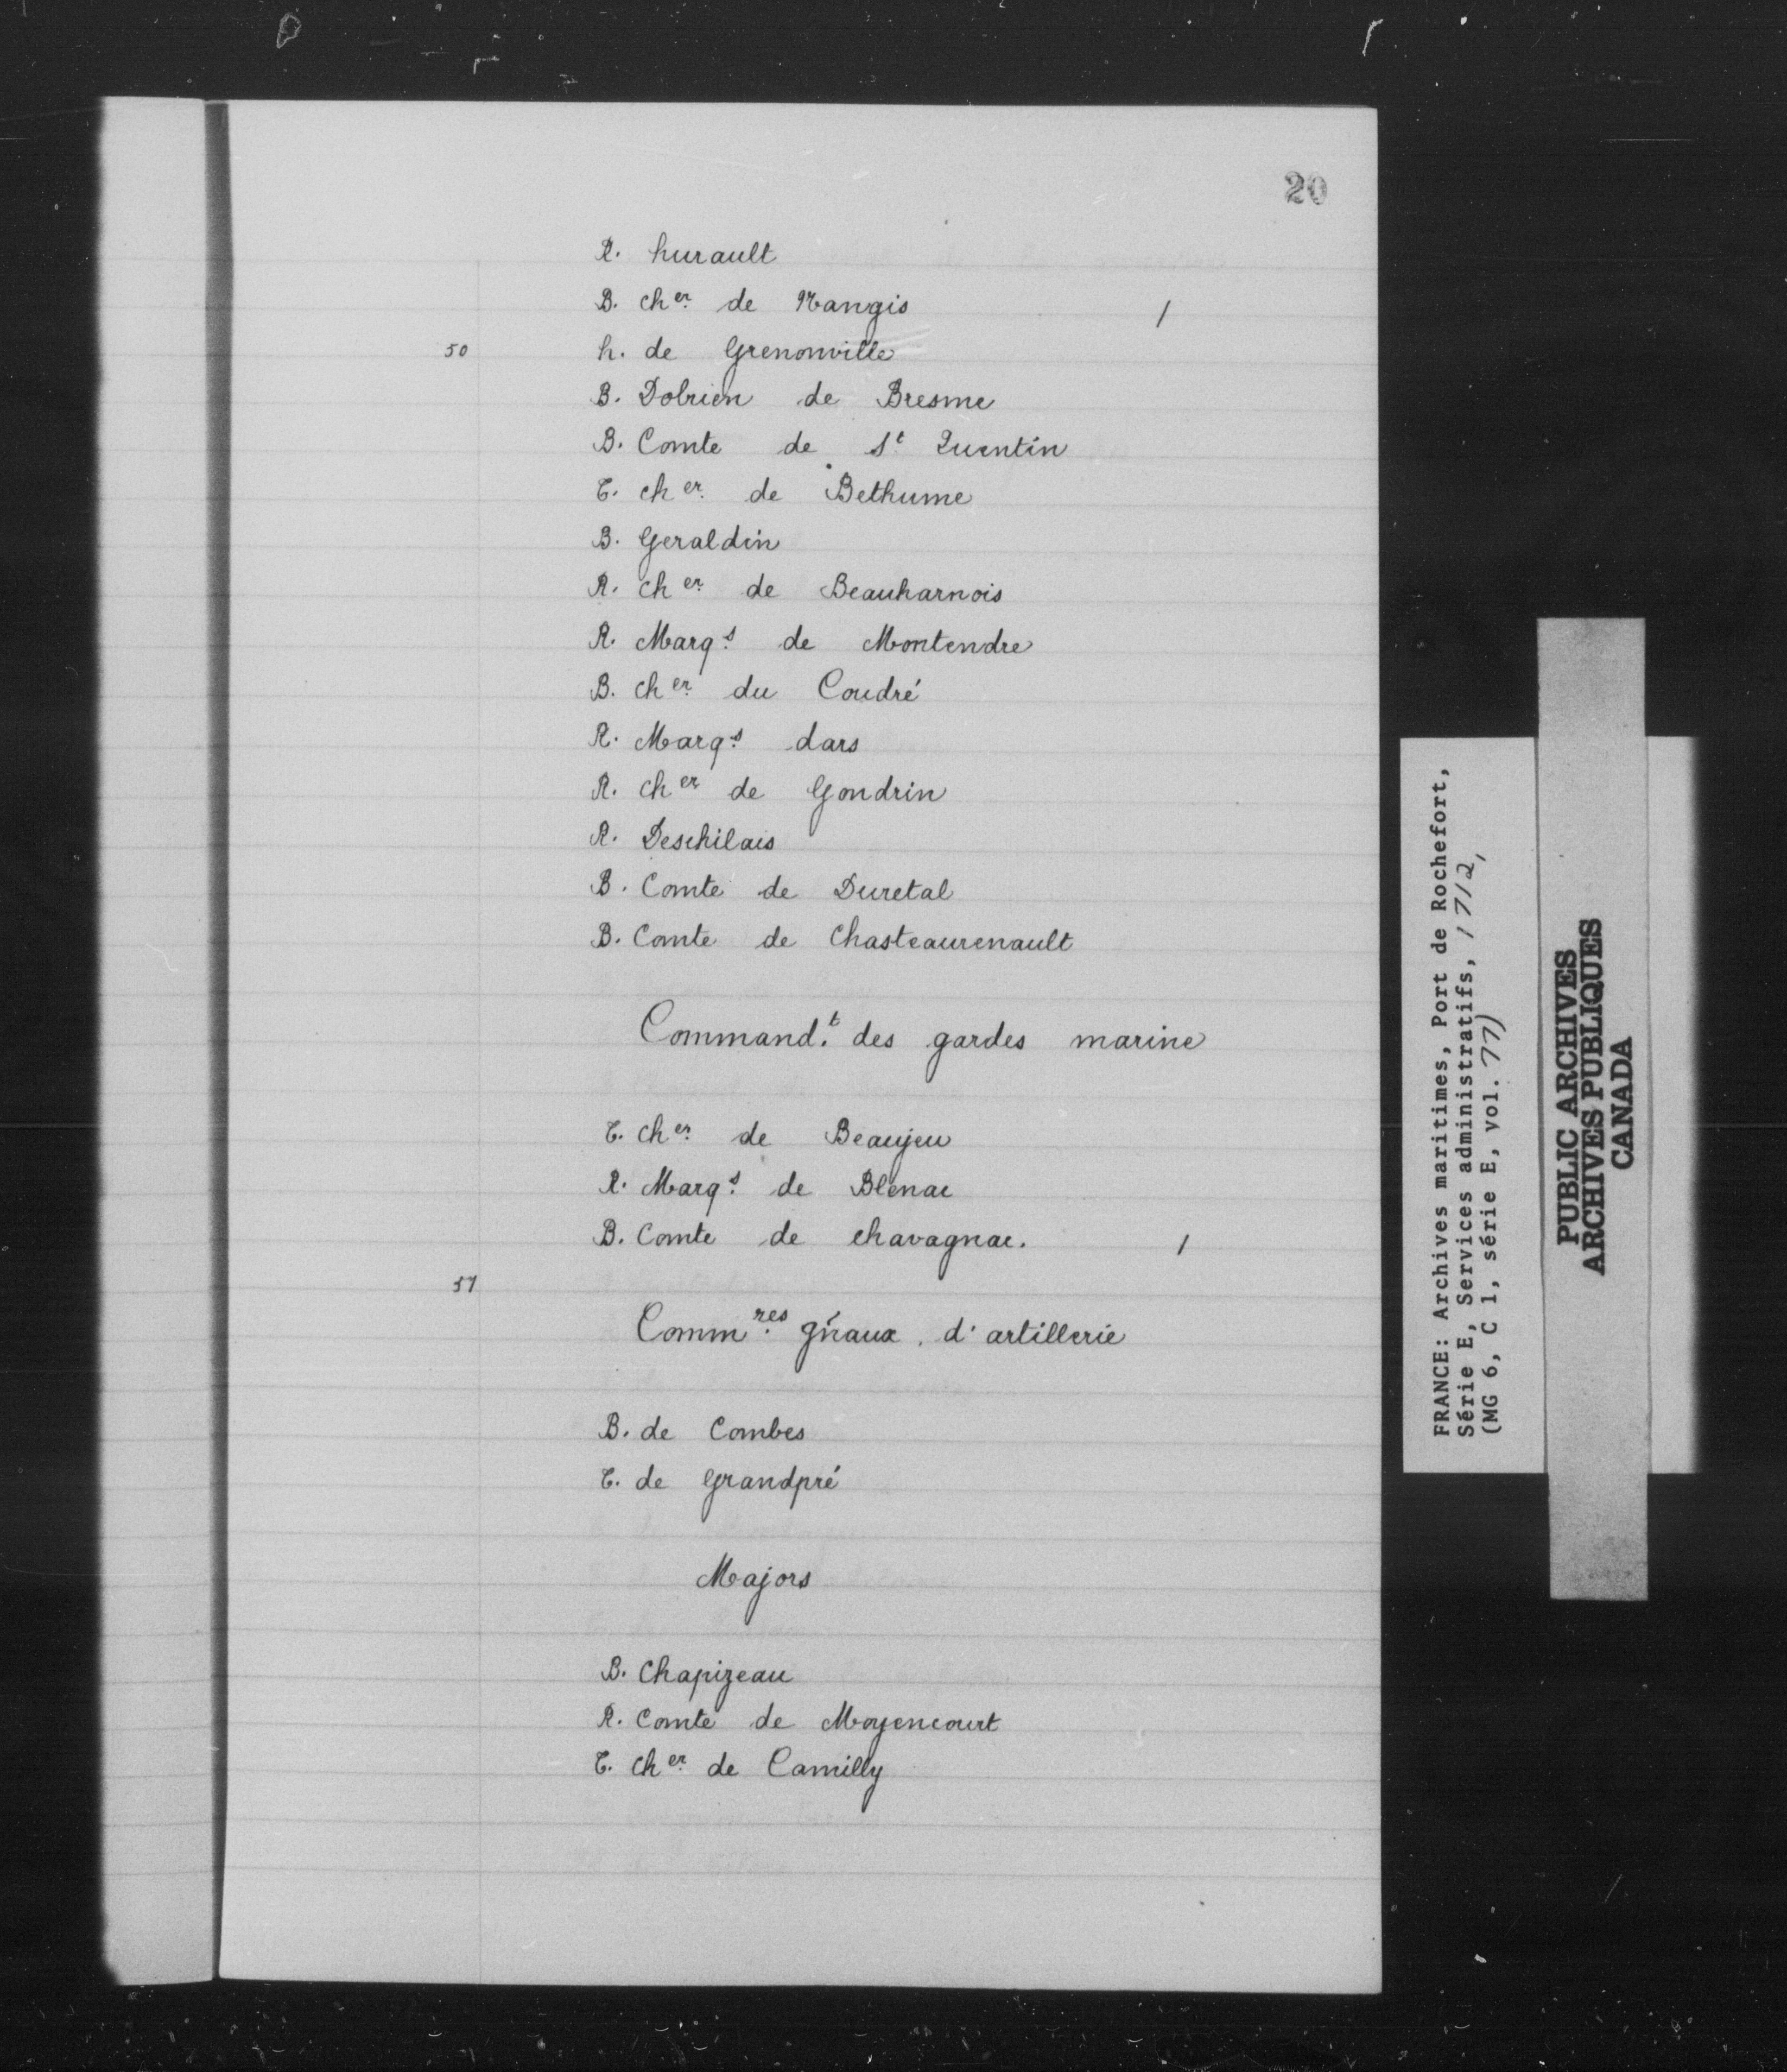 20
R. hurault
B. cher. de Nangis /
50 h. de Grenonville
B. Dobrien de Bresme
B. Comte de St Quentin
T. cher. de Bethume
B. Geraldin
R. cher. de Beauharnois
R. Marqs. de Montendre
B. cher. du Coudré
R. Marqs. dars
R. cher de Gondrin
R. Deschilais
B. Comte de Duretal
B. Comte de Chasteaurenault
Command.t des gardes marine
T. cher. de Beaujeu
R. Marqs. de Blenac
B. Comte de chavagnac. /
51
Comm.res gñaux. d'artillerie
B. de Combes
T. de Grandpré
Majors
B. Chapizeau
R. Comte de Moyencourt
T. cher. de Camilly
FRANCE: Archives maritimes, Port de Rochefort,
Série E, Services administratifs, 1712,
(MG 6, C 1, série E, vol. 77)
PUBLIC ARCHIVES
ARCHIVES PUBLIQUES
CANADA